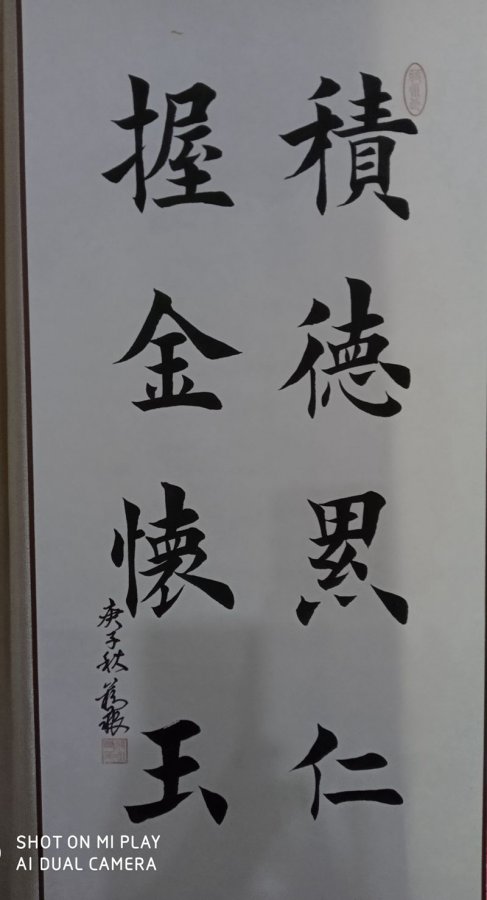 積德累仁
握金懷玉
庚子秋
SHOT ON MI PLAY
AI DUAL CAMERA